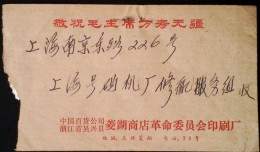 敬祝毛主席万寿无疆
上海南京东路226号
上海号码机厂修配服务组 收
中国百货公司
浙江省吴兴县 菱湖商店革命委员会印刷厂